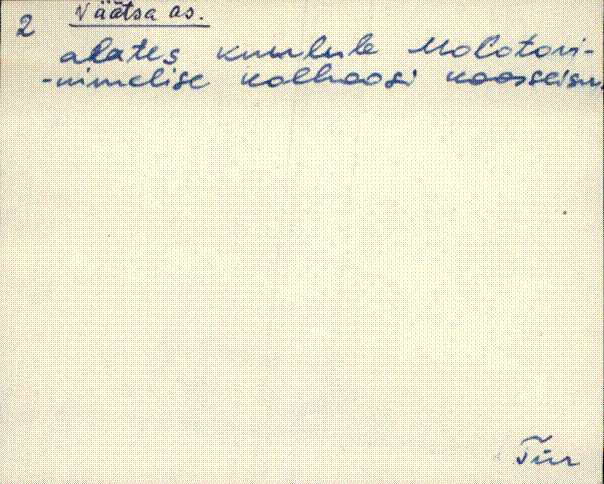 2 Väätsa as.
alates kuulub Molotovi-
-nimelise kolhoosi koosseisu.
Tür